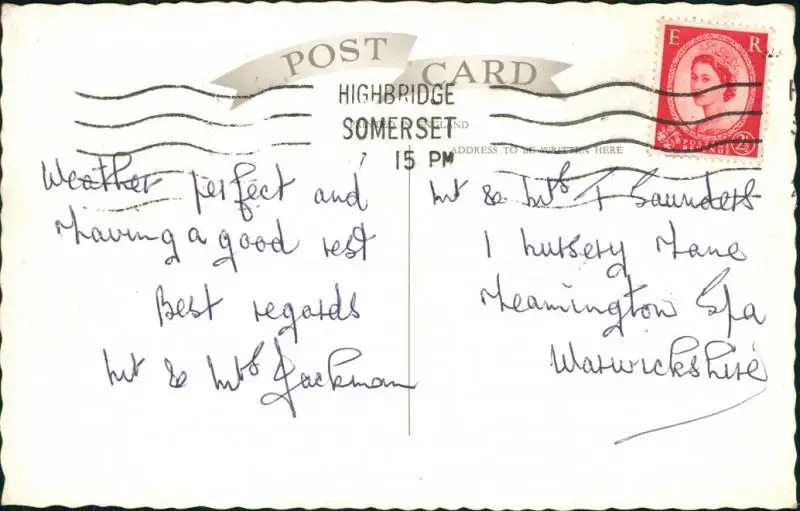 POST CARD
HIGHBRIDGE
SOMERSET
7 15 PM
ADDRESS TO BE WRITTEN HERE
E R
2½
Weather perfect and
Having a good rest
Best regards
Mr & Mrs Jackman
Mr & Mrs T Saunders
1 Nursery Lane
Leamington Spa
Warwickshire